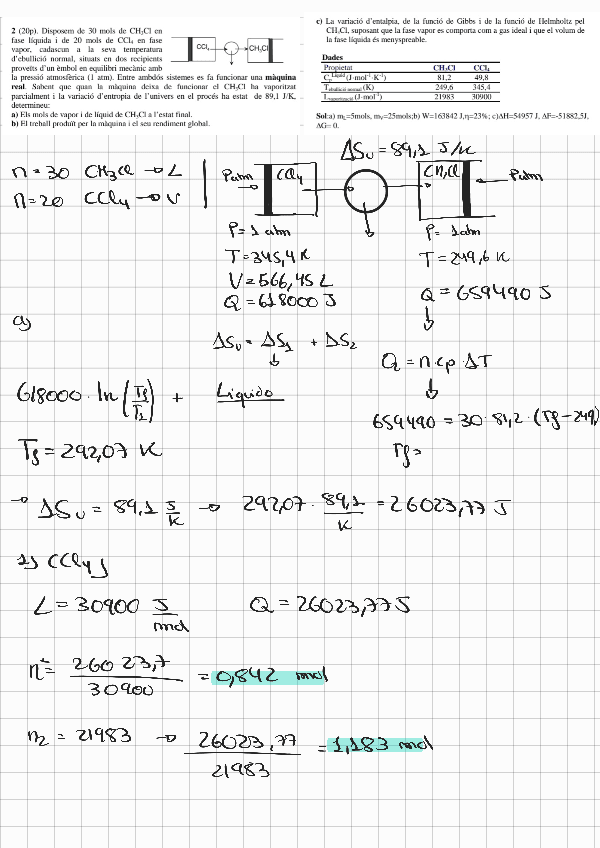 2 (20p). Disposem de 30 mols de CH₃Cl en
fase líquida i de 20 mols de CCl₄ en fase
vapor, cadascun a la seva temperatura
d'ebullició normal, situats en dos recipients
proveïts d'un èmbol en equilibri mecànic amb
la pressió atmosfèrica (1 atm). Entre ambdós sistemes es fa funcionar una màquina
real. Sabent que quan la màquina deixa de funcionar el CH₃Cl ha vaporitzat
parcialment i la variació d'entropia de l'univers en el procés ha estat de 89,1 J/K,
determineu:
a) Els mols de vapor i de líquid de CH₃Cl a l'estat final.
b) El treball produït per la màquina i el seu rendiment global.
CCl₄
CH₃Cl
c) La variació d'entalpia, de la funció de Gibbs i de la funció de Helmholtz pel
CH₃Cl, suposant que la fase vapor es comporta com a gas ideal i que el volum de
la fase líquida és menyspreable.
Dades
Propietat CH₃Cl CCl₄
Cₚ Líquid (J·mol⁻¹·K⁻¹) 81,2 49,8
T ebullició normal (K) 249,6 345,4
L vaporització (J·mol⁻¹) 21983 30900
Sol:a) mL=5mols, mV=25mols;b) W=163842 J,η=23%; c)ΔH=54957 J, ΔF=-51882,5J,
ΔG= 0.
ΔSu = 89,1 J/K
n=30 CH3Cl → L
n=20 CCl4 → V
Patm
CCl4
CH3Cl
Patm
P=1 atm
T=345,4 K
V=566,45 L
Q=618000 J
P=1atm
T=249,6 K
Q=659490 J
a)
ΔSu = ΔS1 + ΔS2
Q = n·cp·ΔT
618000 · ln (Tf/T1) + Liquido
659490 = 30·81,2·(Tf-249,
Tf=
Tf = 292,07 K
→ ΔSu = 89,1 J/K → 292,07 · 89,1/K = 26023,77 J
1) CCl4
L = 30900 J/mol
Q = 26023,77J
n = 26023,7/30900 = 0,842 mol
n2 = 21983 → 26023,77/21983 = 1,183 mol